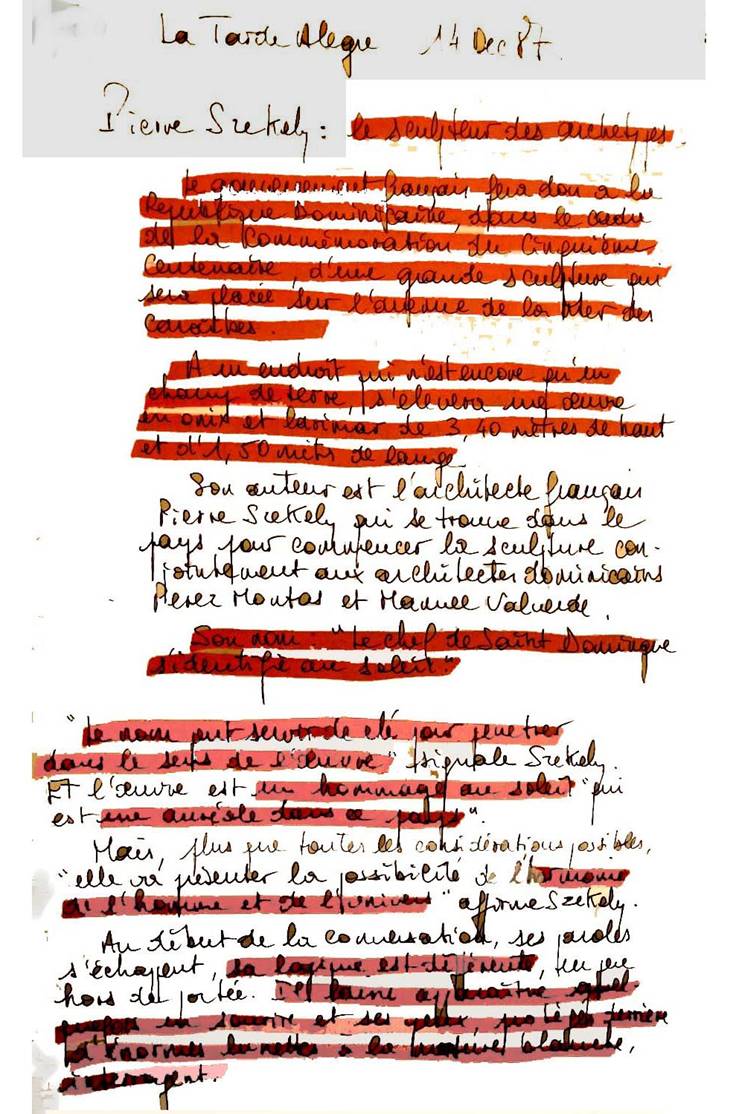 La Tarde Alegre 14 Dec 87.
Pierre Szekely : le sculpteur des archetypes.
Le gouvernement français fera don a la
Republique Dominicaine, dans le cadre
de la Commémoration du Cinquième
Centenaire, d'une grande sculpture qui
sera placée sur l'avenue de la Mer des
Caraïbes.
A un endroit qui n'est encore qu'un
champ de terre, s'elevera une œuvre
en onix et larimar de 3,40 mètres de haut
et d'1,50 mèts de large.
Son auteur est l'architecte français
Pierre Szekely qui se trouve dans le
pays pour commencer la sculpture con-
jointement aux architectes dominicains
Perez Montas et Manuel Valverde.
Son nom : "Le chef de Saint Domingue
s'identifie au soleil."
"Le nom peut servir de clé pour penetrer
dans le sens de l'œuvre" signale Szekely.
Et l'œuvre est "un hommage au soleil" qui
est une auréole dans ce pays".
Mais, plus que toutes les considérations possibles,
"elle va présenter la possibilité de l'harmonie
de l'homme et de l'univers" affirme Szekely.
Au début de la conversation, ses paroles
s'échapent, sa logique est différente, un peu
hors de portée. Il laisse apparaître quel-
quefois un sourire et ses yeux, protégés derrière
d'énormes lunettes à la monture blanche,
interrogent.